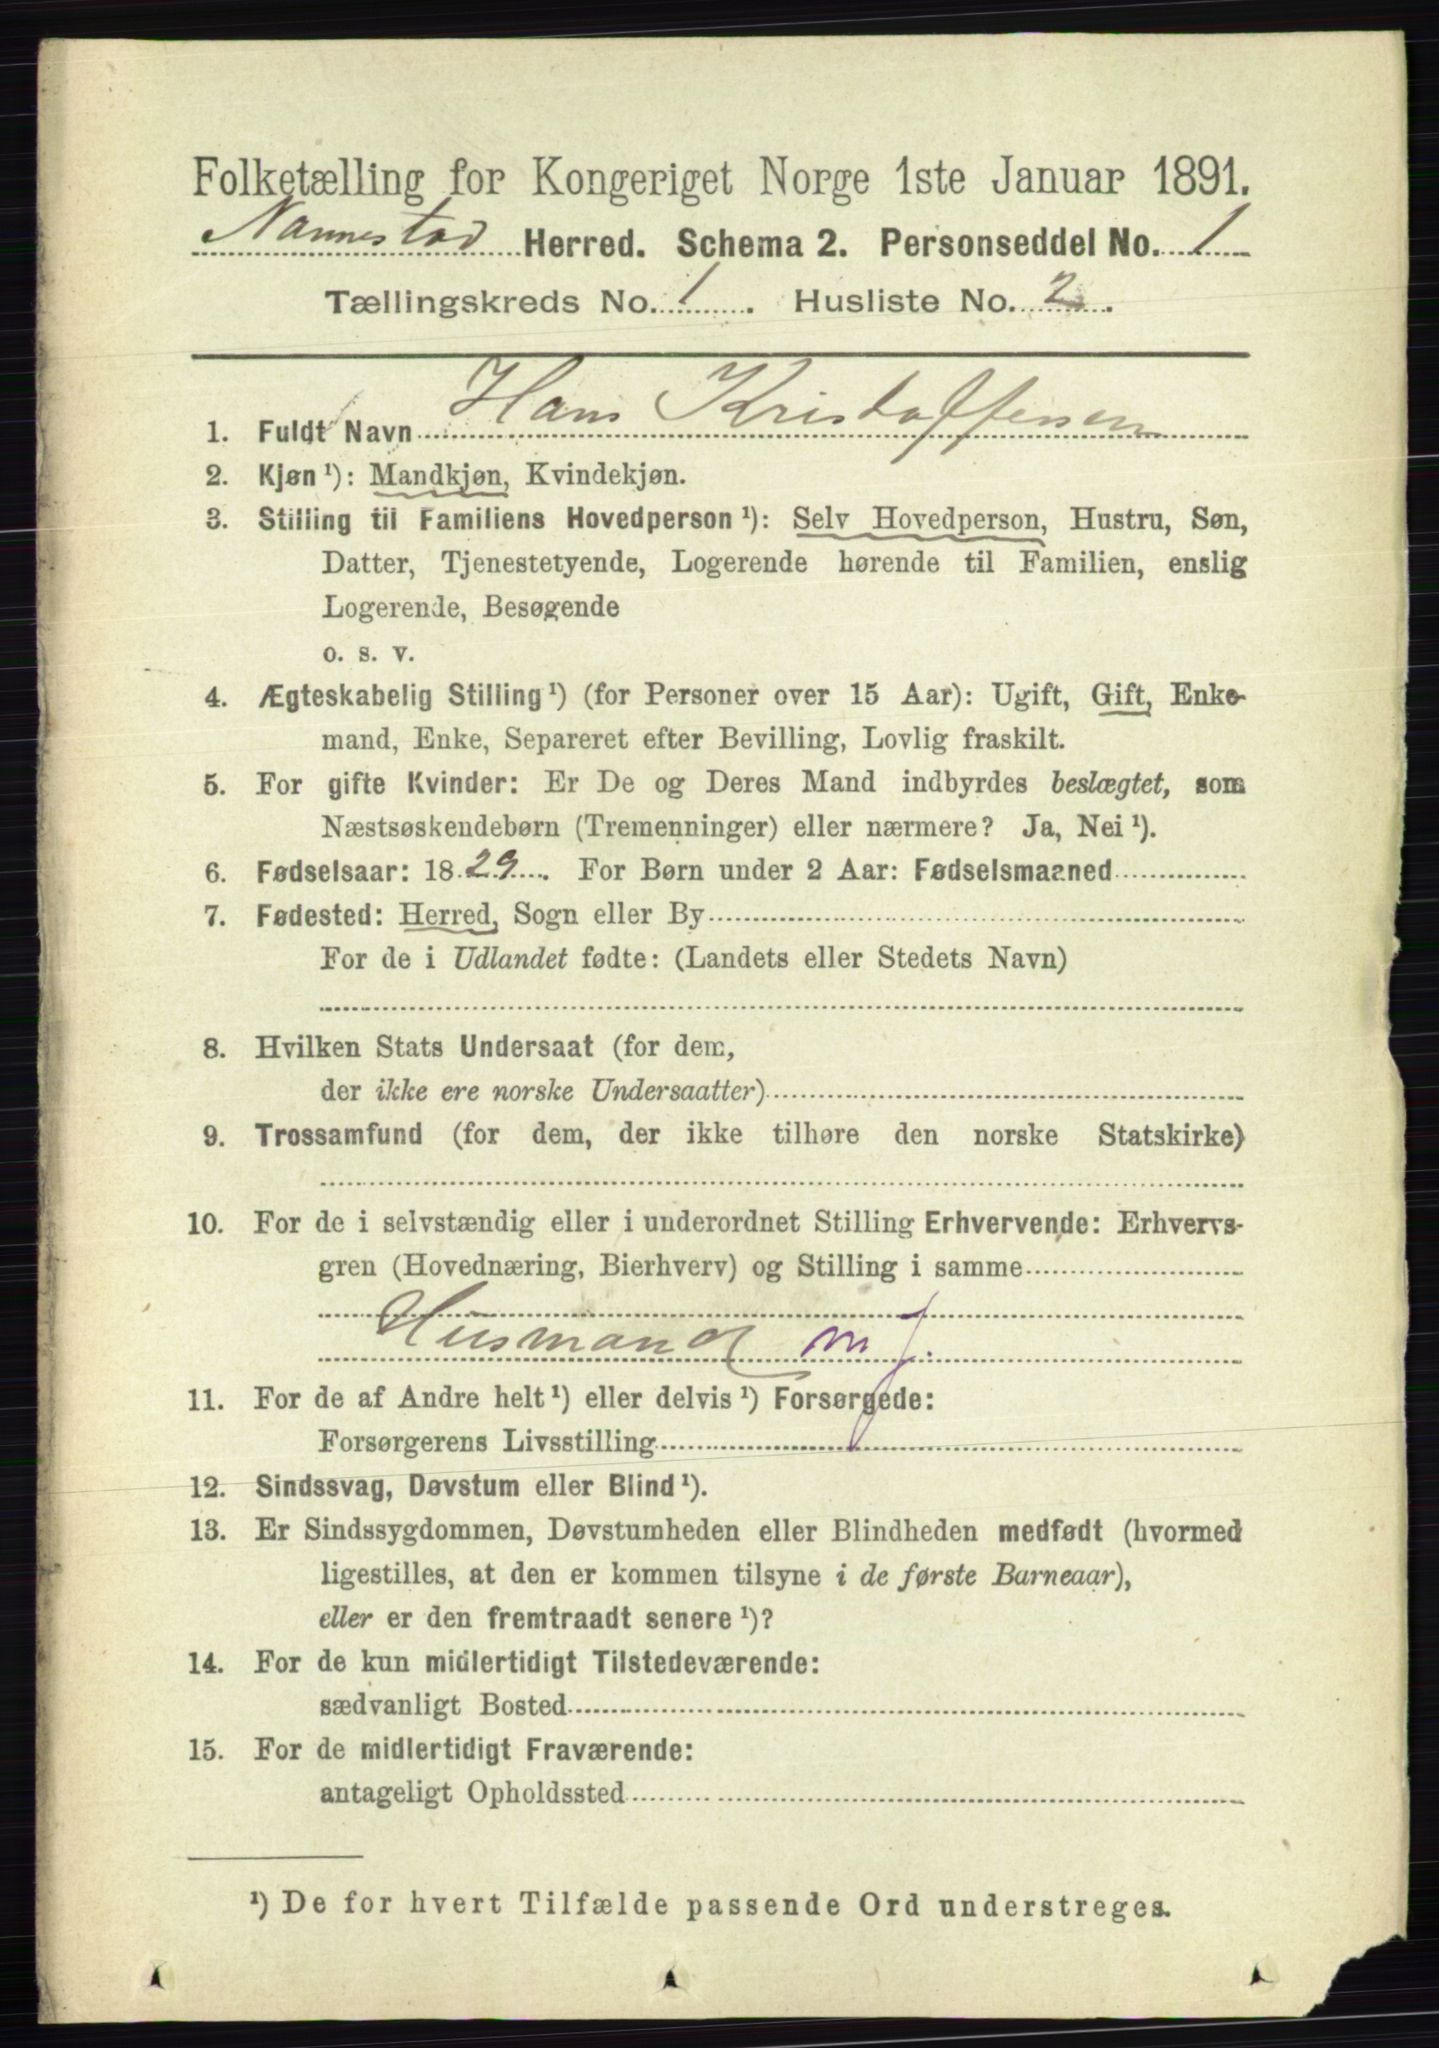 Folketælling for Kongeriget Norge 1ste Januar 1891.
Nannestad Herred. Schema 2. Personseddel No. 1
Tællingskreds No. 1. Husliste No. 2.
1. Fuldt Navn Hans Kristoffersen
2. Kjøn ¹): Mandkjøn, Kvindekjøn.
3. Stilling til Familiens Hovedperson ¹): Selv Hovedperson, Hustru, Søn,
Datter, Tjenestetyende, Logerende hørende til Familien, enslig
Logerende, Besøgende
o. s. v.
4. Ægteskabelig Stilling ¹) (for Personer over 15 Aar): Ugift, Gift, Enke-
mand, Enke, Separeret efter Bevilling, Lovlig fraskilt.
5. For gifte Kvinder: Er De og Deres Mand indbyrdes beslægtet, som
Næstsøskendebørn (Tremenninger) eller nærmere? Ja, Nei ¹).
6. Fødselsaar: 1829. For Børn under 2 Aar: Fødselsmaaned
7. Fødested: Herred, Sogn eller By
For de i Udlandet fødte: (Landets eller Stedets Navn)
8. Hvilken Stats Undersaat (for dem,
der ikke ere norske Undersaatter)
9. Trossamfund (for dem, der ikke tilhøre den norske Statskirke)
10. For de i selvstændig eller i underordnet Stilling Erhvervende: Erhvervs-
gren (Hovednæring, Bierhverv) og Stilling i samme
Husmand m j.
11. For de af Andre helt ¹) eller delvis ¹) Forsørgede:
Forsørgerens Livsstilling
12. Sindssvag, Døvstum eller Blind ¹).
13. Er Sindssygdommen, Døvstumheden eller Blindheden medfødt (hvormed
ligestilles, at den er kommen tilsyne i de første Barneaar),
eller er den fremtraadt senere ¹)?
14. For de kun midlertidigt Tilstedeværende:
sædvanligt Bosted
15. For de midlertidigt Fraværende:
antageligt Opholdssted
¹) De for hvert Tilfælde passende Ord understreges.